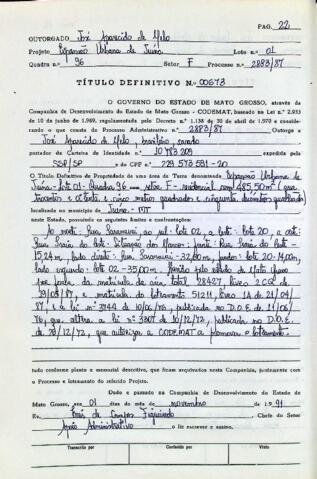 PAG. 22
OUTORGADO José Aparecido de Melo
Projeto Expansão Urbana de Juína Lote n.o 01
Quadra n.o 96 Setor F Processo n.o 2883/87
TÍTULO DEFINITIVO N.o 00673
O GOVERNO DO ESTADO DE MATO GROSSO, através da
Companhia de Desenvolvimento do Estado de Mato Grosso - CODEMAT, baseado na Lei n.o 2.933
de 10 de junho de 1.969, regulamentada pelo Decreto n.o 1.138 de 30 de abril de 1.970 e considerando
o que consta do Processo Administrativo n.o 2883/87 Outorga a
José Aparecido de Melo, brasileiro, casado
portador da Carteira de Identidade n.o 10 783 203 expedida pela
SSP/SP e do CPF n.o 229 573 531-20
O Título Definitivo de Propriedade de uma área de Terra denominada Expansão Urbana de
Juína - lote 01 - Quadra 96 setor F - residencial com 485,50m² (quatrocentos
e oitenta e cinco metros quadrados e cinquenta decímetros quadrados
localizado no município de Juína - MT
neste Estado, possuindo os seguintes limites e confrontações:
Ao norte: Rua ao sul: lote 02, a leste lote 20, a oeste:
Rua do lote: Situação dos Marcos: frente: Rua do lote -
15,24m, lado direito: Rua - 32,80m, fundos: lote 20 - 14,00m,
lado esquerdo: lote 02 - 35,00m. pelo estado de Mato Grosso
da matrícula da área total 28427, livro 2 CQ de
e matrícula do loteamento 51211, livro 1A de 21/04/
87, e a lei nº 3744 de 10/06/76, publicada no D.O.E. de 11/06/
76, que altera a lei nº 3307 de 18/12/72, publicada no D.O.E.
de 28/12/72, que autoriza a CODEMAT a promover o loteamento.
tudo conforme planta e memorial descritivo, que ficam arquivados nesta Companhia, juntamente com
o Processo e loteamento do referido Projeto.
Dado e passado na Companhia de Desenvolvimento do Estado de
Mato Grosso, aos 01 dias do mês de novembro de 19 91
Eu, de Campos Figueiredo, Chefe do Setor
Apoio Administrativo o fiz escrever e assino.
Transcrito por Conferido por Visto